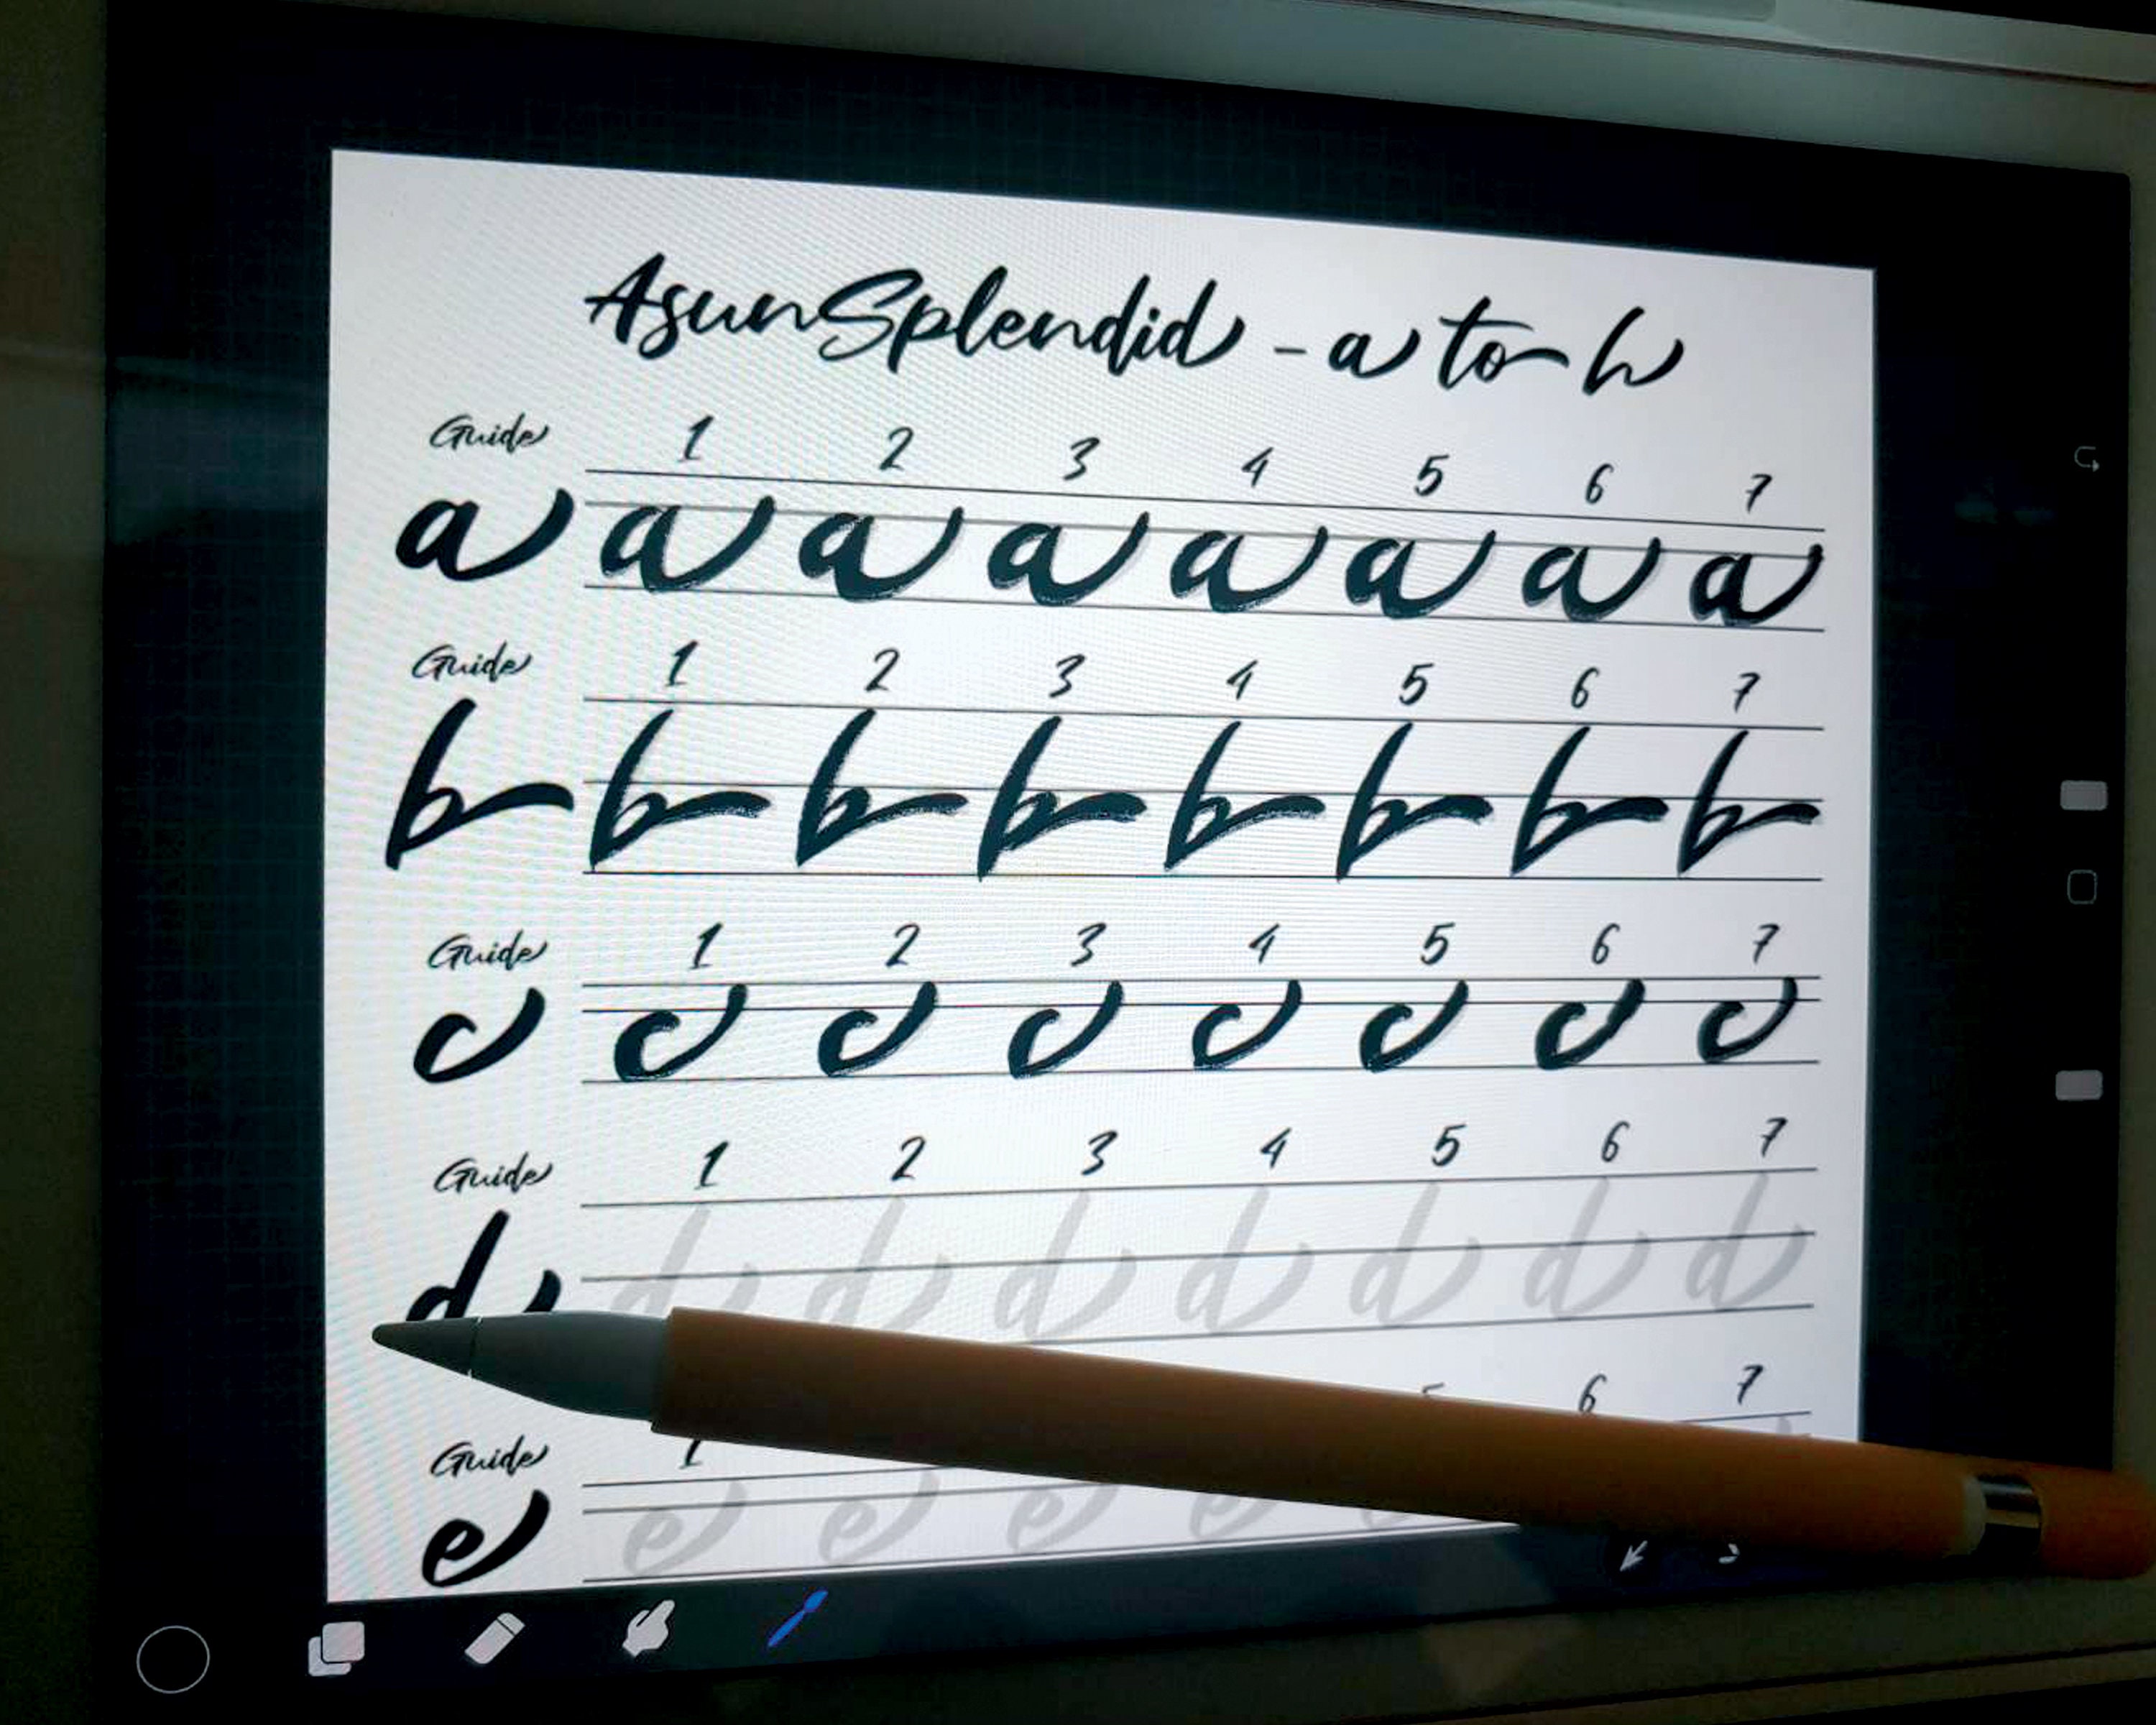 AsunSplendid - a to h
Guide 1 2 3 4 5 6 7
a a a a a a a a
Guide 1 2 3 4 5 6 7
b b b b b b b b
Guide 1 2 3 4 5 6 7
c c c c c c c c
Guide 1 2 3 4 5 6 7
d d d d d d d d
Guide 1 6 7
e e e e e